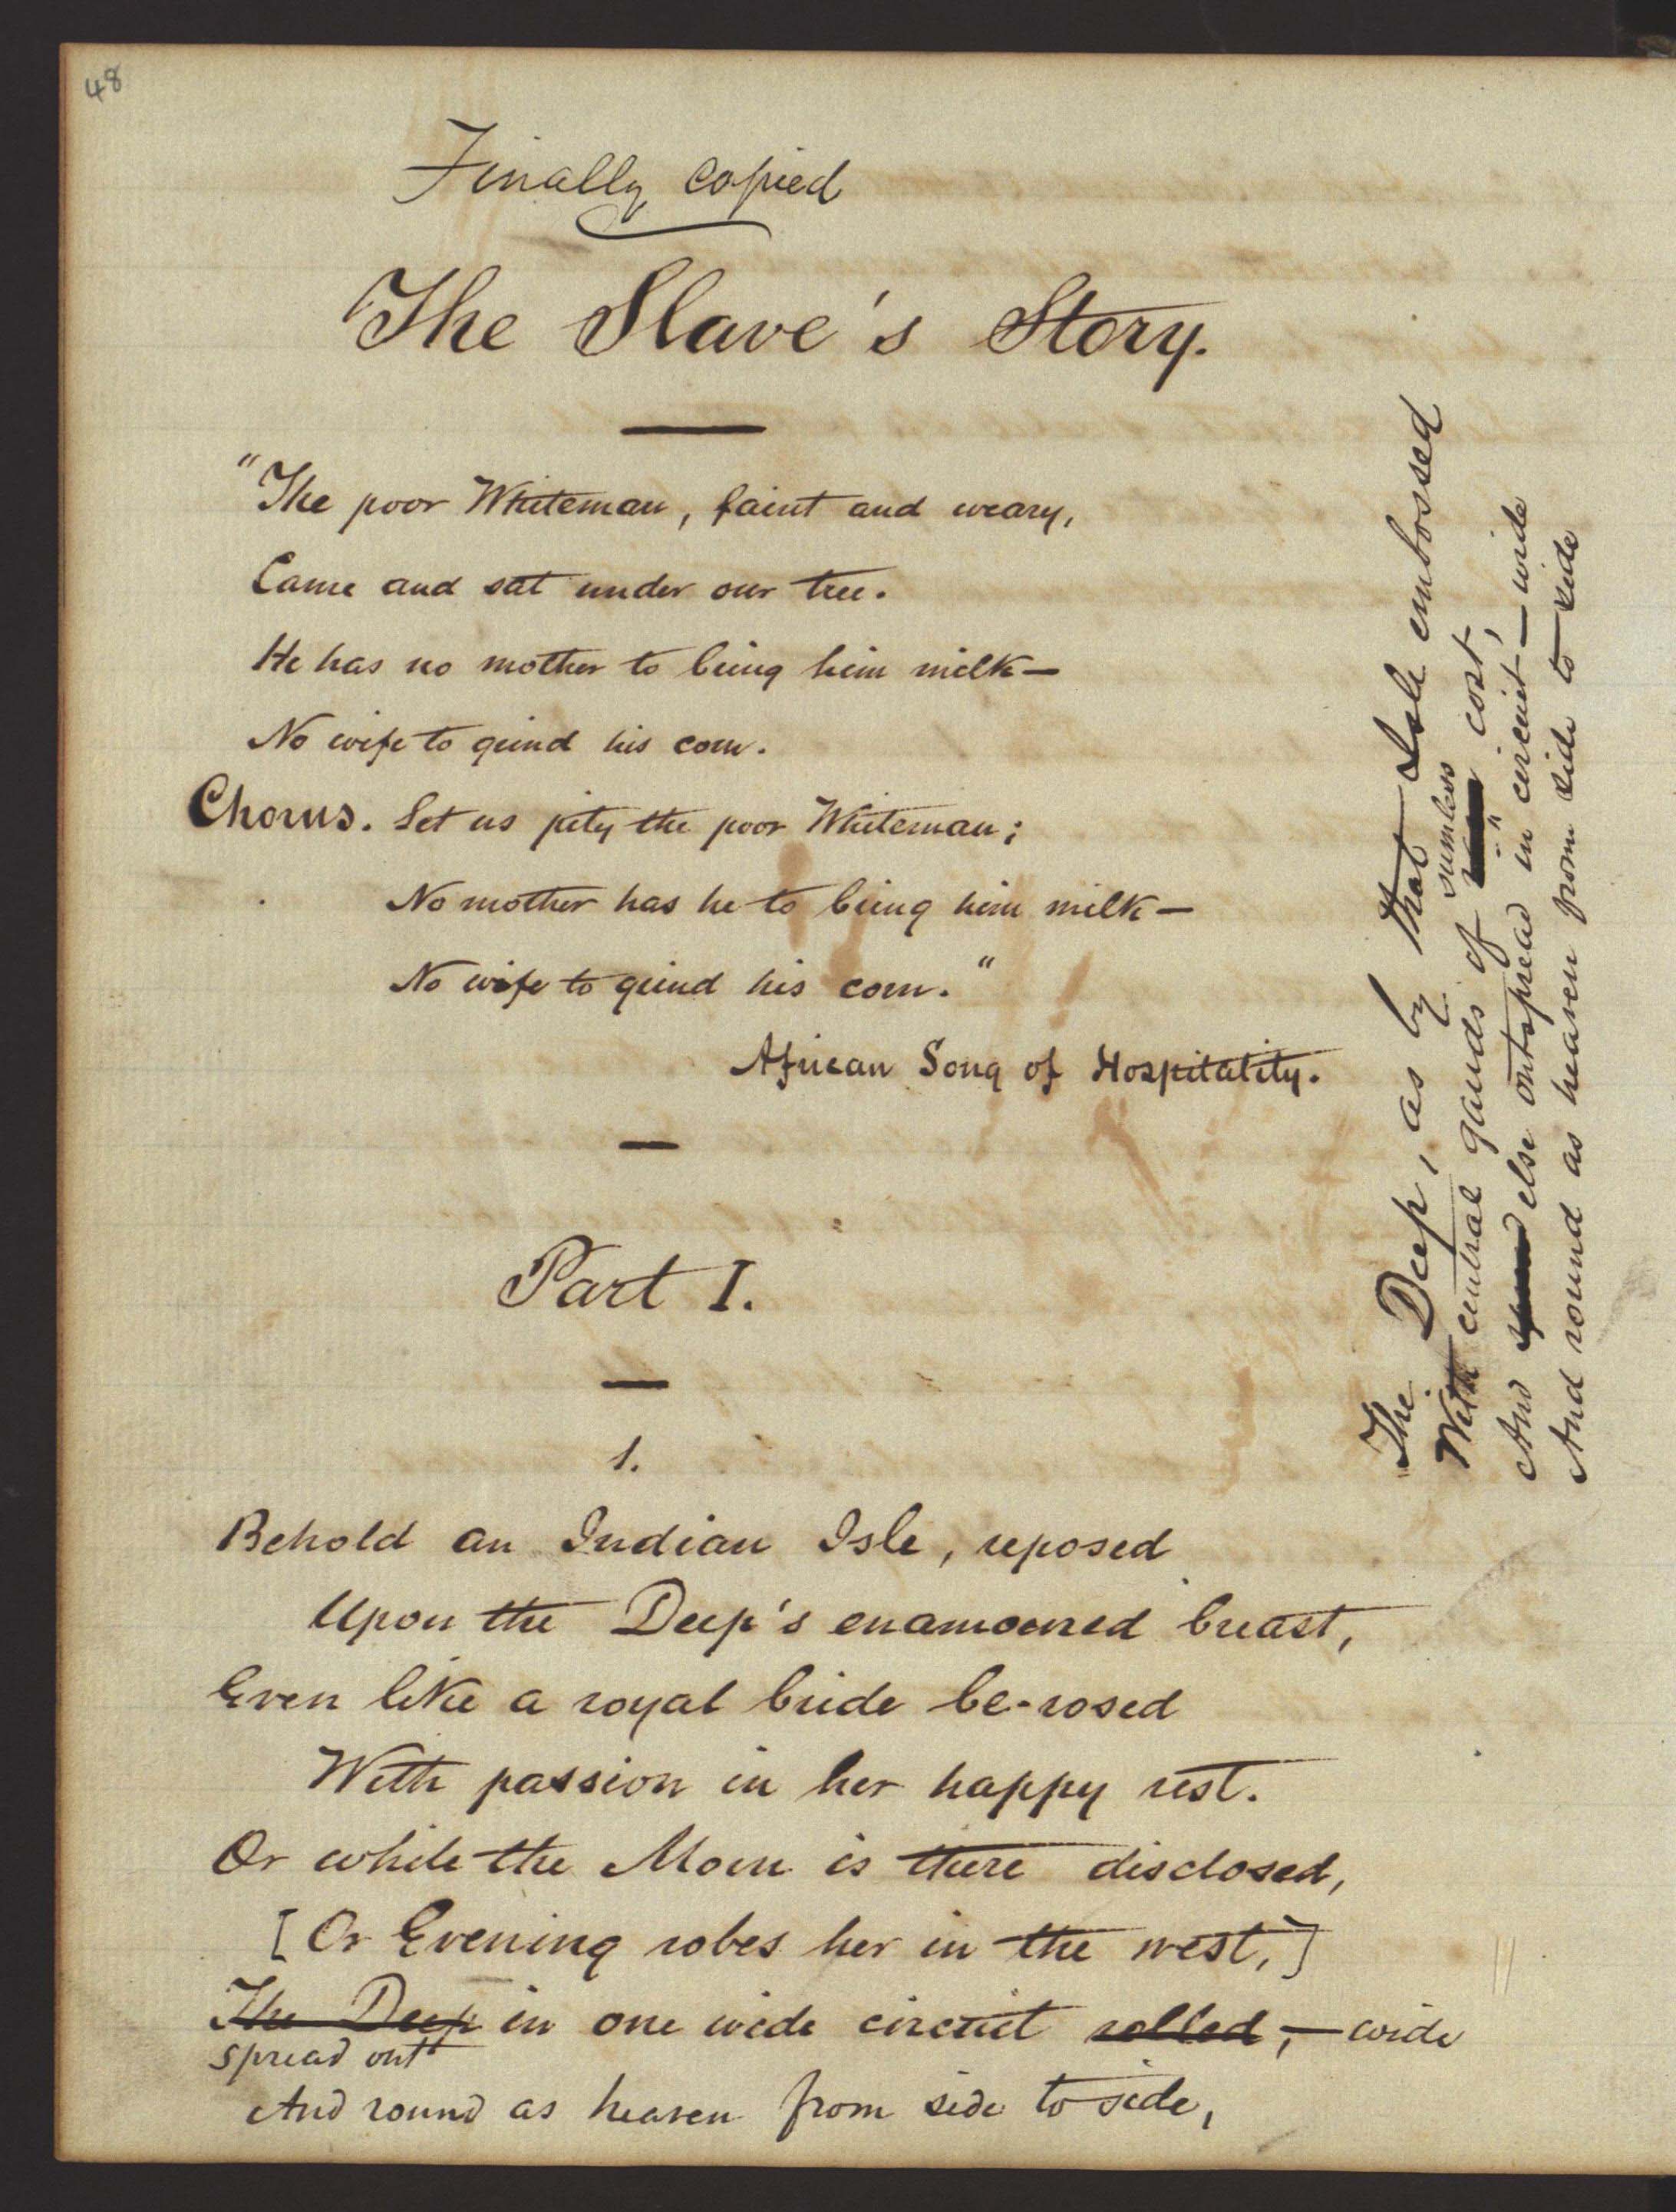 48
Finally copied
The Slave's Story.
"The poor Whiteman, faint and weary,
Came and sat under our tree.
He has no mother to bring him milk—
No wife to grind his corn.
Chorus. Let us pity the poor Whiteman;
No mother has he to bring him milk—
No wife to grind his corn."
African Song of Hospitality.
Part I.
1.
Behold an Indian Isle, reposed
Upon the Deep's enamoured breast,
Even like a royal bride be-rosed
With passion in her happy rest.
Or while the Morn is there disclosed,
[Or Evening robes her in the west,]
The Deep in one wide circuit rolled,—wide
spread out
And round as heaven from side to side,
"The Deep, as by that Isle embossed
sumless
With central gauds of cost,
And else outspread in circuit—wide
And round as heaven from side to side